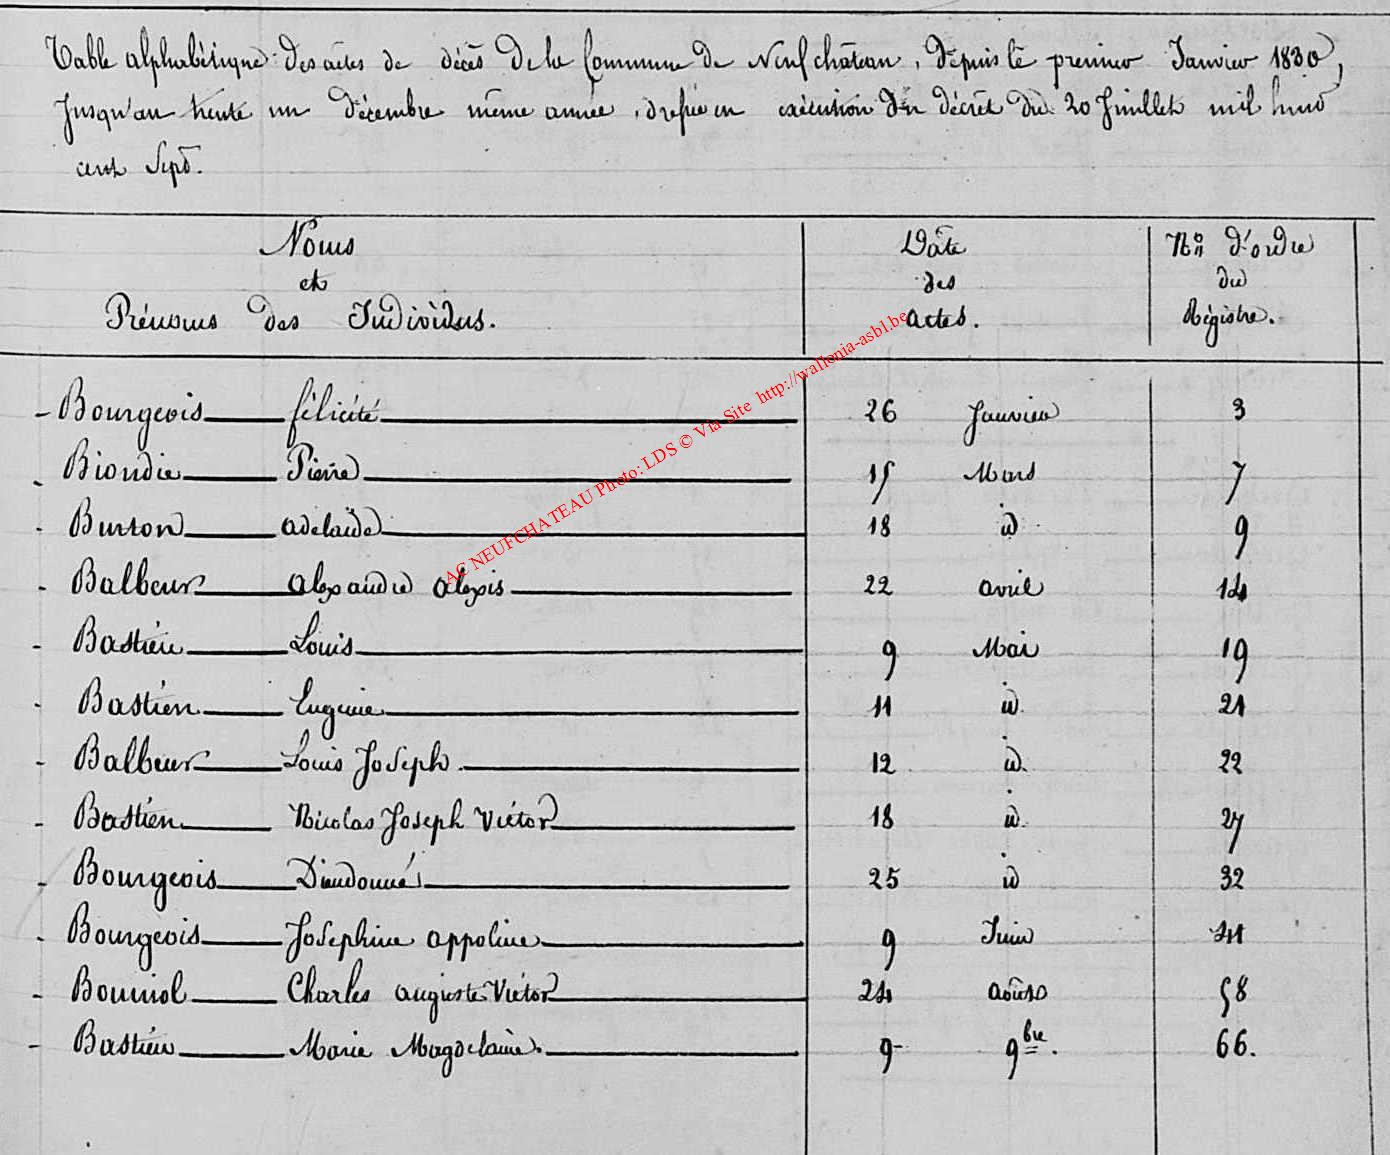 Table alphabétique des actes de décès de la Commune de Neufchâteau, depuis le premier Janvier 1830,
Jusqu'au trente un décembre même année, dressée en exécution du décret du 20 Juillet mil huit
cent Sept.
Noms et Prénoms des Individus. Dâte des Actes. Nos d'ordre du Régistre.
Bourgeois félicité 26 Janvier 3
Biondie Pierre 15 Mars 7
Burton adelaïde 18 id 9
Balbeur alexandre alexis 22 avril 14
Bastien Louis 9 Mai 19
Bastien Eugenie 11 id 21
Balbeur Louis Joseph 12 id. 22
Bastien Nicolas Joseph Victor 18 id 27
Bourgeois Dieudonné 25 id 32
Bourgeois Josephine appoline 9 Juin 41
Bouniol Charles auguste Victor 24 août 58
Bastien Marie Magdelaine. 9 9bre. 66.
AC NEUFCHATEAU Photo: LDS © Via Site http://wallonia-asbl.be